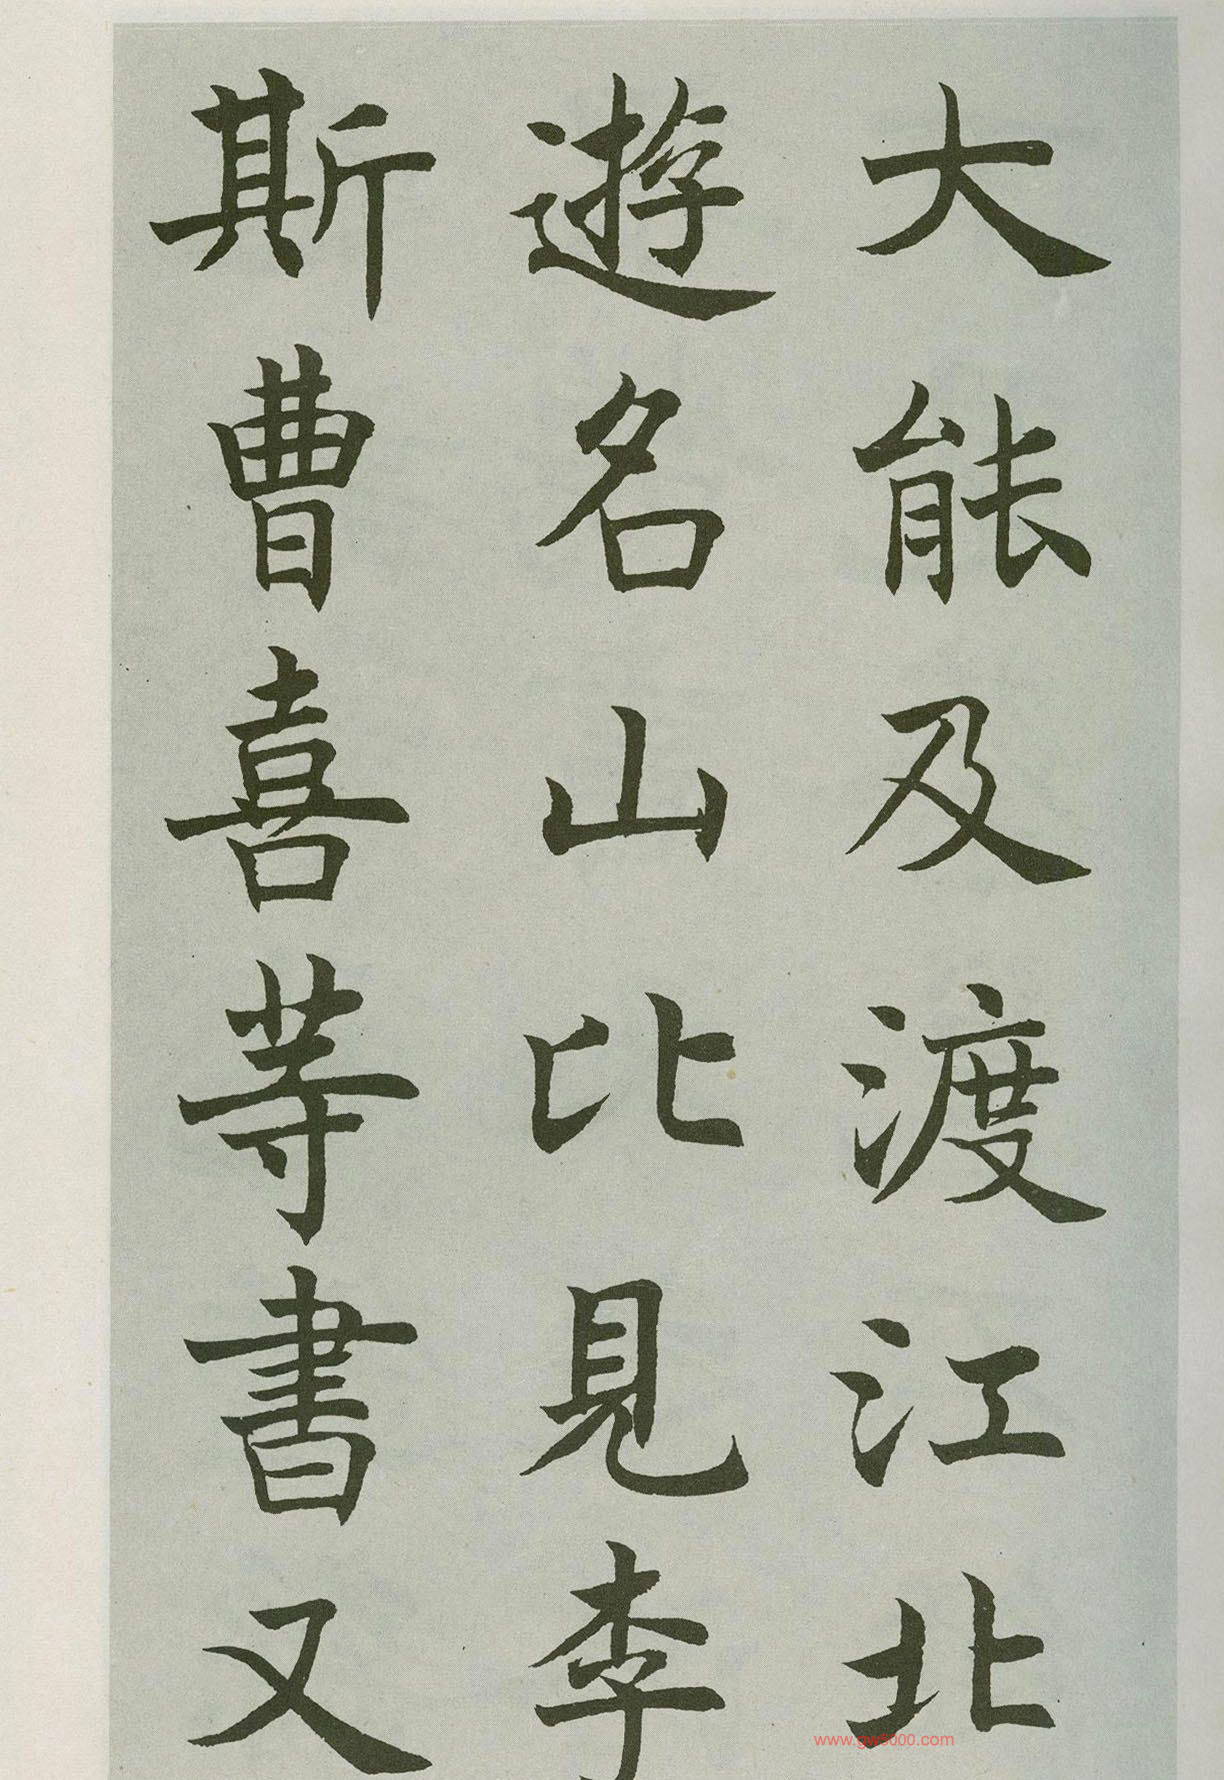 大能及渡江北
遊名山比見李
斯曹喜等書又
www.gw5000.com